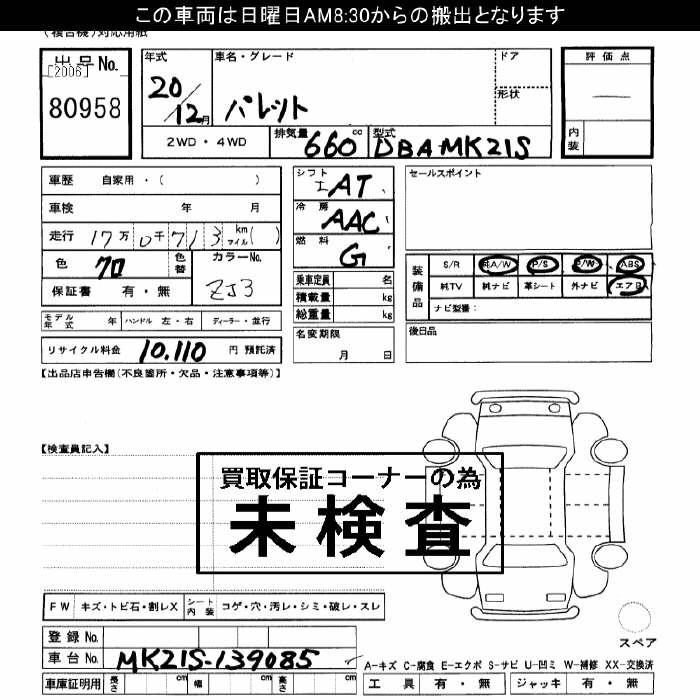 この車両は日曜日AM8:30からの搬出となります
(複合機)対応用紙
出品No.
[2006]
80958
年式
20/12月
車名・グレード
パレット
ドア
形状
評価点
内装
2WD・4WD
排気量 660 cc
型式 DBAMK21S
車歴 自家用・( )
車検 年 月
走行 17万 0千 713 km マイル( )
色 クロ
色替
カラーNo. ZJ3
保証書 有・無
シフト AT
冷房 AAC
燃料 G
乗車定員 名
積載量 kg
総重量 kg
名変期限
月 日
セールスポイント
装備品
S/R 純A/W P/S P/W ABS
純TV 純ナビ 革シート 外ナビ エアB
ナビ型番:
後日品
モデル年式 年 ハンドル 左・右 ディーラー・並行
リサイクル料金 10,110 円 預託済
【出品店申告欄(不良箇所・欠品・注意事項等)】
【検査員記入】
買取保証コーナーの為
未検査
FW キズ・トビ石・割レX
シート内装 コゲ・穴・汚レ・シミ・破レ・スレ
登録No.
車台No. MK21S-139085
車庫証明用 長さ cm 幅 cm 高さ cm
スペア
A-キズ C-腐食 E-エクボ S-サビ U-凹ミ W-補修 XX-交換済
工具 有・無 ジャッキ 有・無